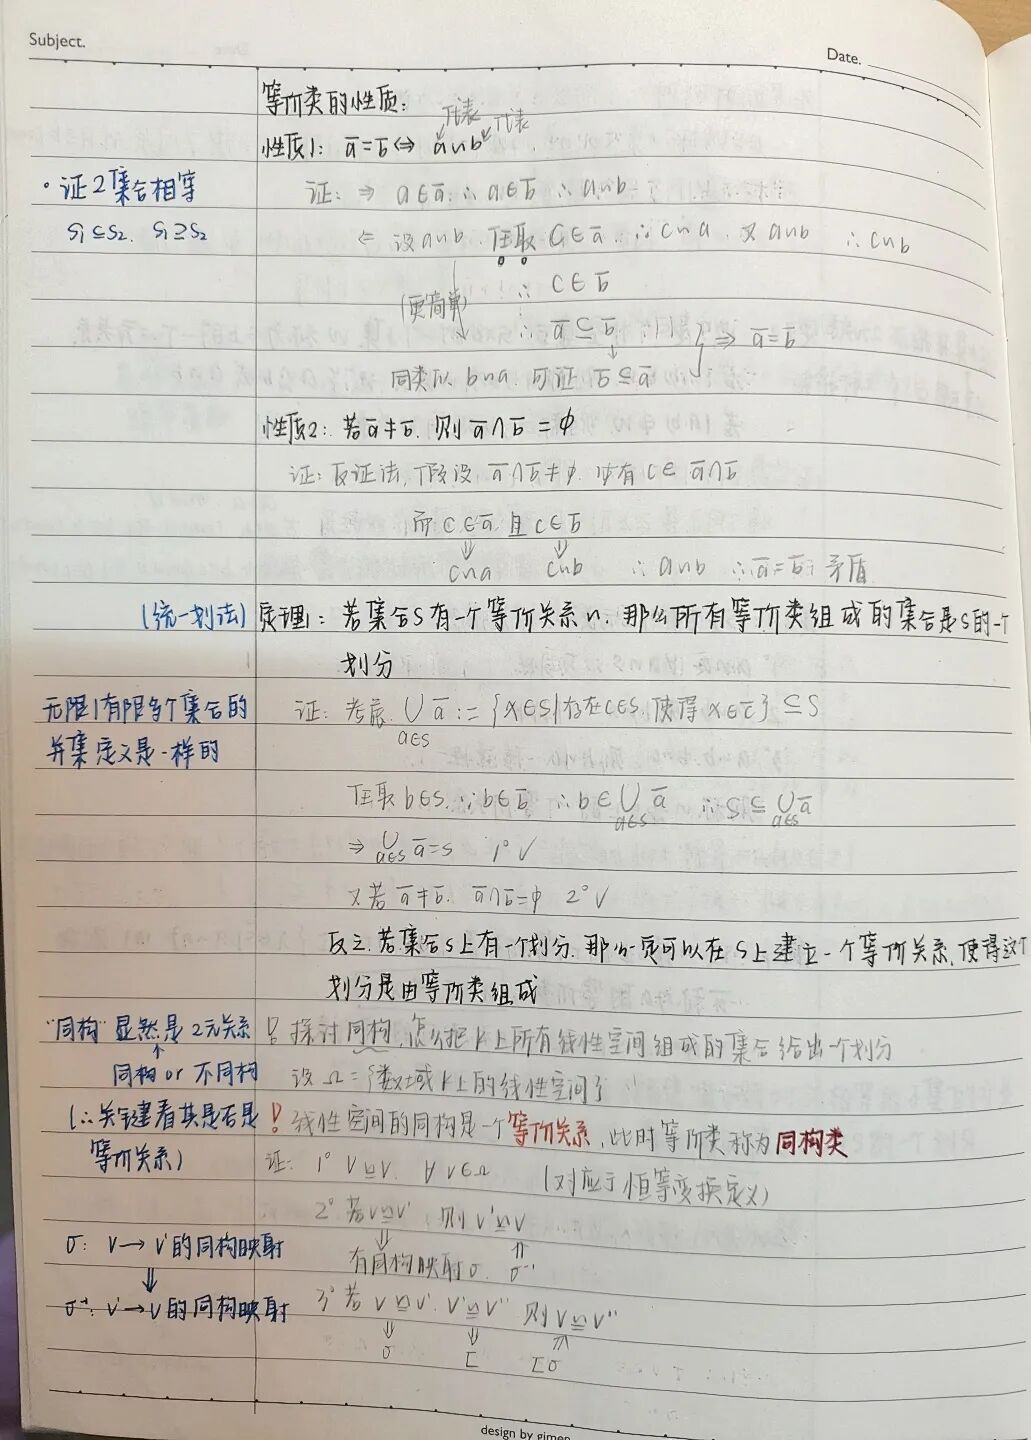 Subject.
Date.
等价类的性质:
代表 代表
性质1: ā=b̄ ⇔ a∽b
·证2集合相等
S₁⊆S₂. S₁⊇S₂
证: ⇒ a∈ā ∴ a∈b̄ ∴ a∽b
⇐ 设a∽b. 任取 C∈ā. ∴ C∽a. 又 a∽b ∴ C∽b
∴ C∈b̄
(更简单)
∴ ā⊆b̄
⇒ ā=b̄
同类似 b∽a. 可证 b̄⊆ā
性质2: 若ā≠b̄. 则 ā∩b̄=∅
证: 反证法, 假设 ā∩b̄≠∅. 必有 C∈ ā∩b̄
而 C∈ā 且 C∈b̄
⇓ ⇓
C∽a C∽b ∴ a∽b ∴ ā=b̄ 矛盾
(统一划法) 定理1: 若集合S有一个等价关系∽. 那么所有等价类组成的集合是S的一个
划分
无限/有限多个集合的
并集定义是一样的
证: 考虑 ⋃ ā := {x∈S|存在C∈S, 使得 x∈c̄} ⊆S
a∈S
任取 b∈S. ∵ b∈b̄ ∴ b∈⋃ ā ∴ S⊆⋃ ā
a∈S a∈S
⇒ ⋃ ā=S 1° √
a∈S
又若 ā≠b̄. ā∩b̄=∅ 2° √
反之, 若集合S上有一个划分. 那么一定可以在S上建立一个等价关系, 使得这个
划分是由等价类组成
"同构"显然是2元关系
↑
同构 or 不同构
(∴关键看其是否是
等价关系)
探讨同构, 怎么把K上所有线性空间组成的集合给出一个划分
设 Ω={数域K上的线性空间}
! 线性空间的同构是一个等价关系, 此时等价类称为同构类
证: 1° V≌V. ∀ V∈Ω (对应于恒等变换定义)
2° 若V≌V', 则 V'≌V
⇓ ⇑
有同构映射σ. σ⁻¹
σ: V→V'的同构映射
⇓
σ⁻¹: V'→V的同构映射
3° 若 V≌V'. V'≌V'' 则V≌V''
⇓ ⇓ ⇑
σ τ τσ
design by gimen